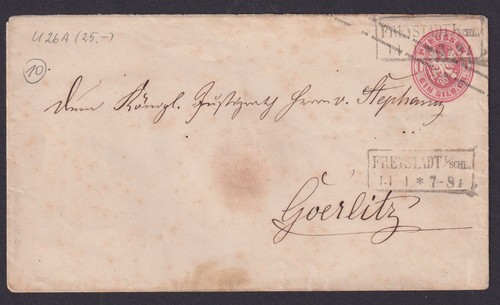 U26A (25.-)
10
FREYSTADT I/SCHL.
PREUSSEN
EIN SILB. GR.
Dem Königl. Justizrath Herrn v. Stephany
FREYSTADT I/SCHL.
14 1 * 7-8
Goerlitz